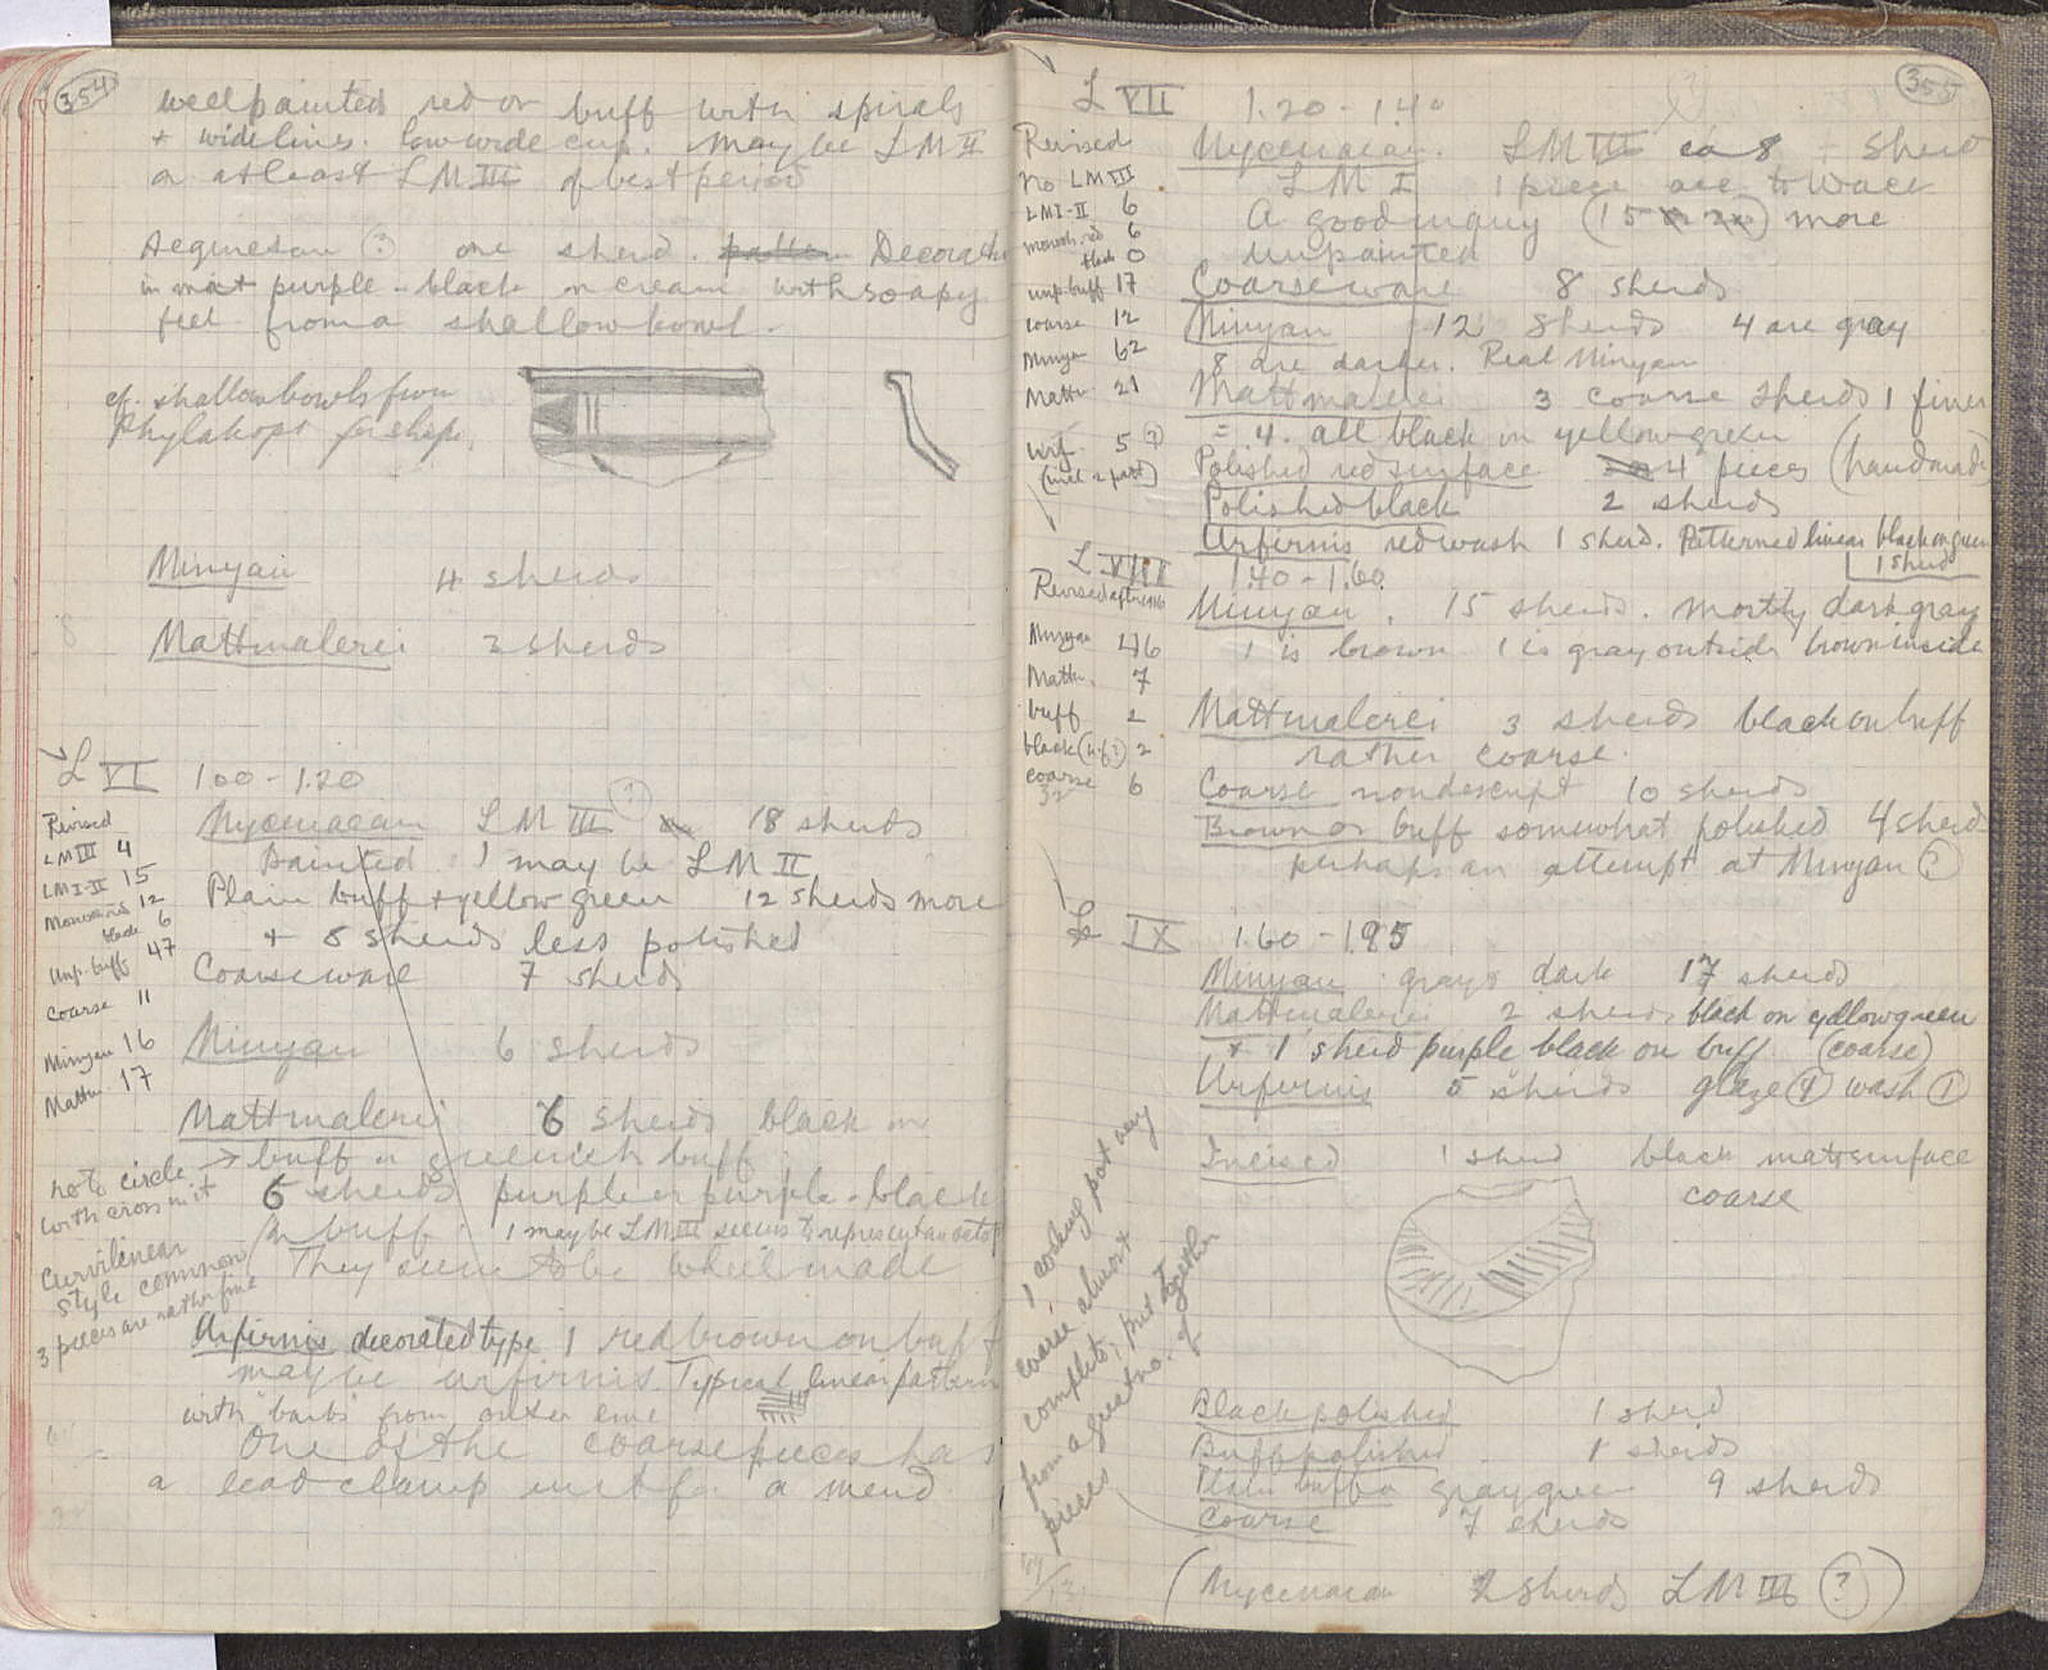 354
well painted red on buff with spirals
+ wide lines. low wide cup. May be LM II
or at least LM III of best period
Aeginetan (?) one sherd. Decoration
in mat purple-black on cream with soapy
feel from a shallow bowl.
cf. shallow bowls from
Phylakopi for shape.
Minyan 4 sherds
Mattmalerei 3 sherds
L VI 1.00-1.20
Revised
LM III 4
LM I-II 15
Monoch. red 12
black 6
Unp. buff 47
Coarse 11
Minyan 16
Mattm 17
Mycenaean LM III (?) 18 sherds
Painted 1 may be LM II
Plain buff + yellow green 12 sherds more
+ 8 sherds less polished
Coarse ware 7 sherds
Minyan 6 sherds
Mattmalerei 6 sherds black on
buff or greenish buff
note circle →
with cross in it
Curvilinear
style common
3 pieces are rather fine
6 sherds purple or purple-black
on buff. 1 may be LM III seems to represent an octop
They seem to be wheel made
Urfirnis decorated type 1 red brown on buff
may be urfirnis. Typical linear pattern
with barbs from outer line
One of the coarse pieces has
a lead clamp in it for a mend
355
L VII 1.20-1.40
Revised
no LM III
LM I-II 6
monoch. red 6
black 0
unp. buff 17
coarse 12
Minyan 62
Mattm 21
Urf. 5 (?)
(incl. 2 patt)
Mycenaean. LM III ca 8 + sherd
LM I 1 piece acc. to Wace
A good many (15) more
unpainted
Coarse ware 8 sherds
Minyan 12 sherds 4 are gray
8 are darker. Real Minyan
Mattmalerei 3 coarse sherds 1 finer
= 4. all black on yellow green
Polished red surface 4 pieces (handmade)
Polished black 2 sherds
Urfirnis red wash 1 sherd. Patterned linear black on green
1 sherd
L VIII 1.40-1.60
Revised
Minyan 46
Mattm. 7
buff 2
black (urf?) 2
coarse 6
32
Minyan. 15 sherds. mostly dark gray
1 is brown 1 is gray outside brown inside
Mattmalerei 3 sherds black on buff
rather coarse.
Coarse nondescript 10 sherds
Brown or buff somewhat polished 4 sherds
perhaps an attempt at Minyan (?)
L IX 1.60-1.95
Minyan grays dark 17 sherds
Mattmalerei 2 sherds black on yellow green
+ 1 sherd purple black on buff (coarse)
Urfirnis 5 sherds glaze (4) wash (1)
Incised 1 sherd black mat surface
coarse
1 cooking pot very
coarse almost
complete, put together
from a great no. of
pieces
Black polished 1 sherd
Buff polished 1 sherds
Plain buff or gray green 9 sherds
Coarse 7 sherds
(Mycenaean 2 sherds LM III (?))